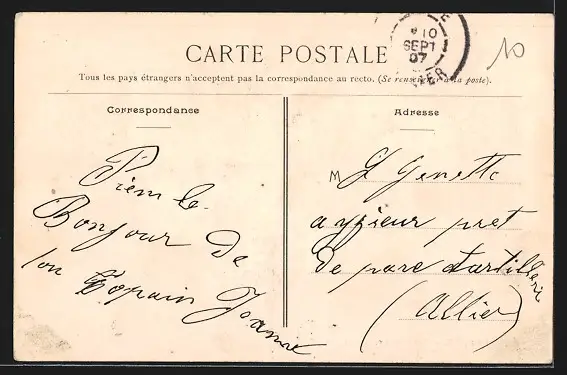 10
SEPT
07
10
CARTE POSTALE
Tous les pays étrangers n'acceptent pas la correspondance au recto. (Se renseigner à la poste).
Correspondance
Bonjour De
ton Copain Joanne
Adresse
M L Genette
a yzieur pret
De parc d'artillerie
(Allier)